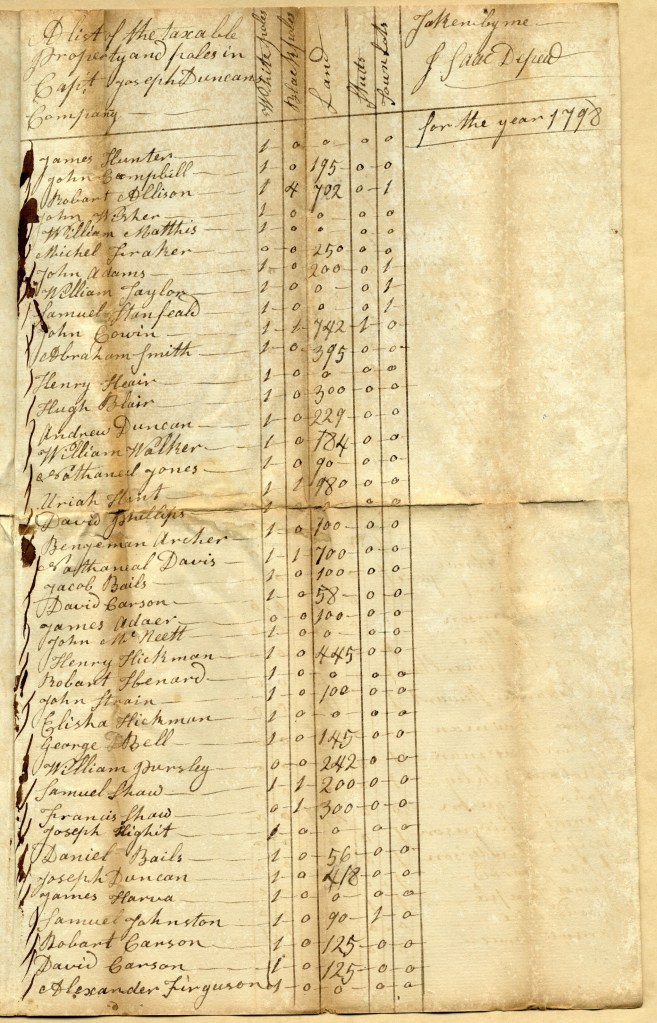 A list of the taxable
Property and poles in
Capt Joseph Duncans
Company
White poles
Black poles
Land
Studs
Town Lots
Taken by me
Isaac Depew
for the year 1798
James Hunter 1 0 0 0 0
John Campbill 1 0 195 0 0
Robart Allison 1 4 702 0 1
John Wisher 1 0 0 0 0
William Matthis 1 0 0 0 0
Michel Fraker 0 0 250 0 0
John Adams 1 0 200 0 1
William Taylor 1 0 0 0 1
Samuel Stanfeald 1 0 0 0 1
John Cowin 1 1 742 1 0
Abraham Smith 1 0 395 0 0
Henry Heair 1 0 0 0 0
Hugh Blair 1 0 300 0 0
Andrew Duncan 1 0 229 0 0
William Walker 1 0 184 0 0
Nathaneel Jones 1 0 90 0 0
Uriah Hunt 1 1 980 0 0
David Phillips 1 0 0
Bengeman Archer 1 0 100 0 0
Nathaneal Davis 1 1 700 0 0
Jacob Bails 1 0 100 0 0
David Carson 1 0 58 0 0
James Adaer 0 0 100 0 0
John McNeett 1 0 0 0 0
Henry Hickman 1 0 445 0 0
Robart 1 0 0 0 0
John Strain 1 0 100 0 0
Elisha Hickman 1 0 0 0 0
George Bell 1 0 145 0 0
William Pursley 0 0 242 0 0
Samuel Shaw 1 1 200 0 0
Francis Shaw 0 1 300 0 0
Joseph Hight 1 0 0 0 0
Daniel Bails 1 0 56 0 0
Joseph Duncan 1 0 418 0 0
James Harva 1 0 0 0 0
Samuel Johnston 1 0 90 1 0
Robart Carson 1 0 125 0 0
David Carson 1 0 125 0 0
Alexander Firguson 1 0 0 0 0